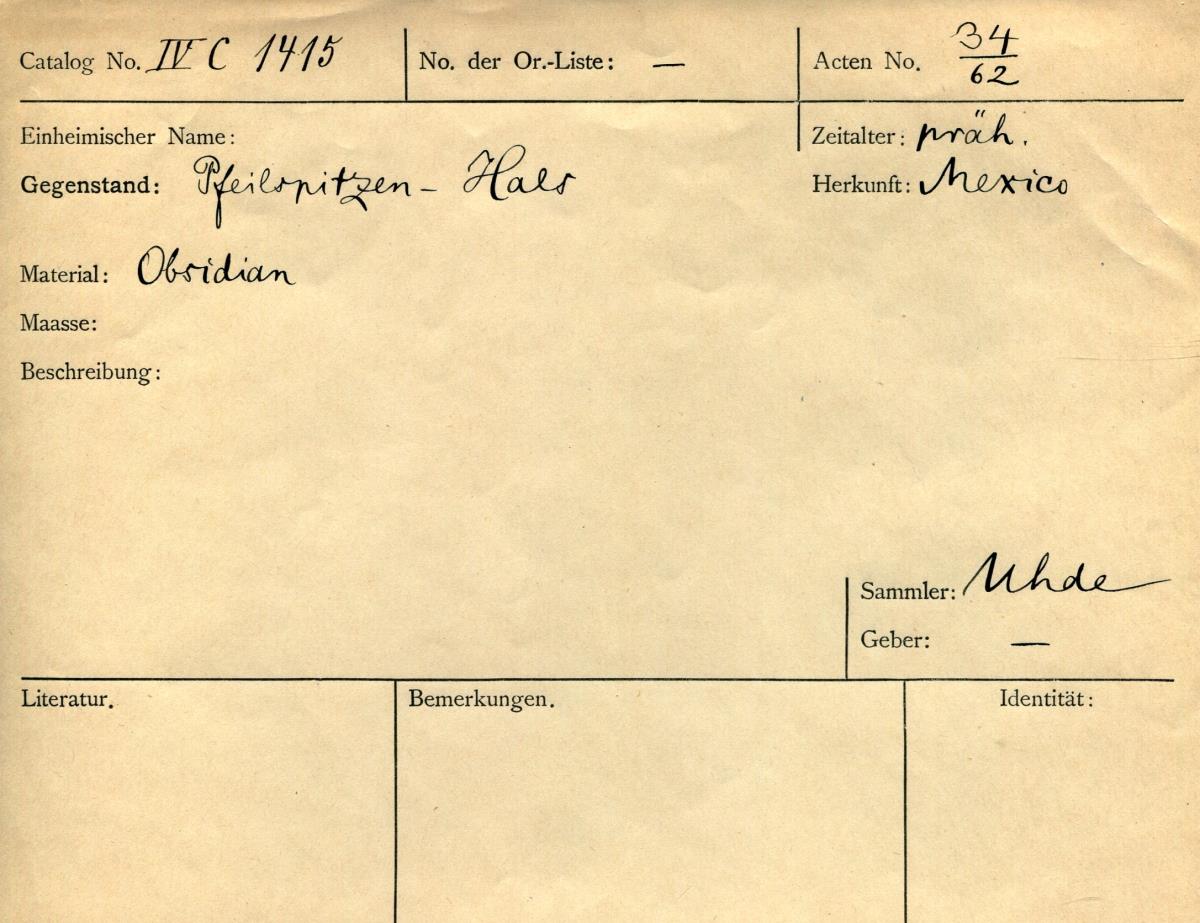 Catalog No. IV C 1415 No. der Or.-Liste: — Acten No. 34/62
Einheimischer Name: Zeitalter: präh.
Gegenstand: Pfeilspitzen - Hals Herkunft: Mexico
Material: Obsidian
Maasse:
Beschreibung:
Sammler: Uhde
Geber: —
Literatur. Bemerkungen. Identität: